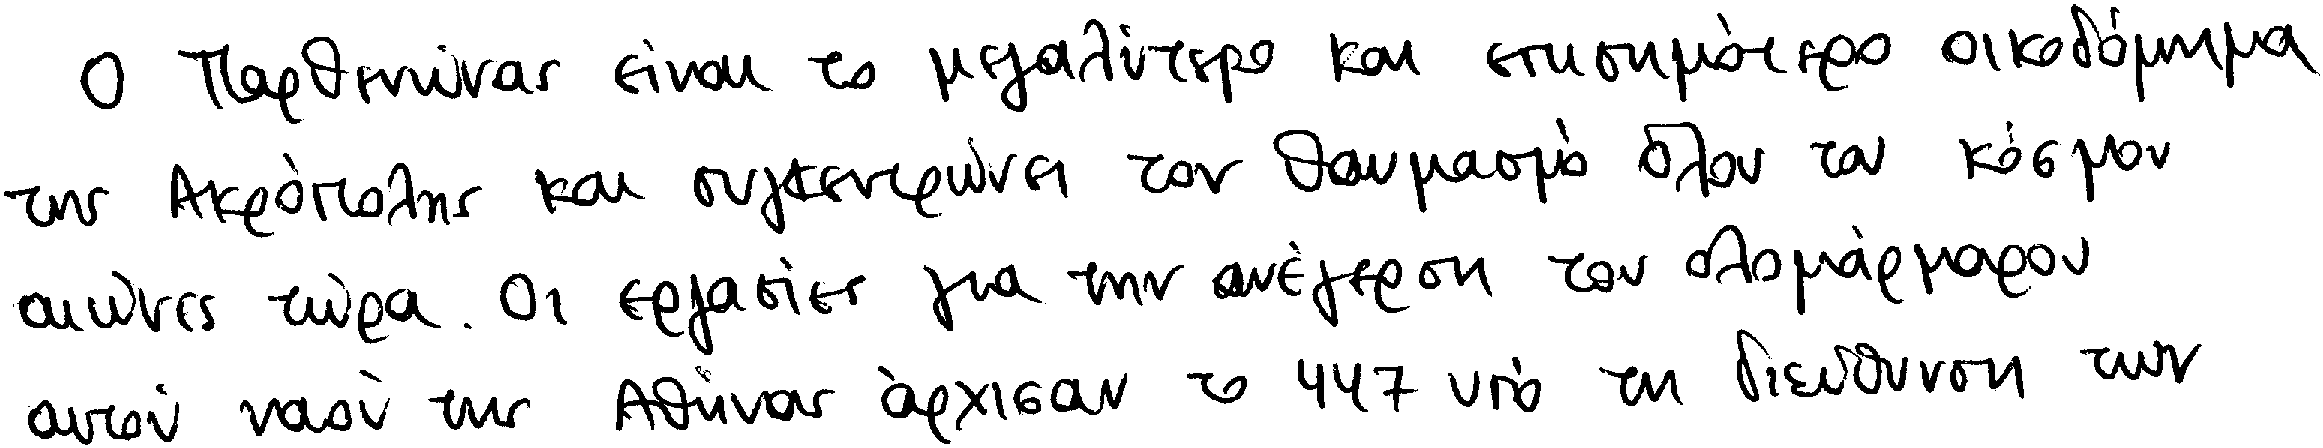 Ο Παρθενώνας είναι το μεγαλύτερο και επισημότερο οικοδόμημα
της Ακρόπολης και συγκεντρώνει τον θαυμασμό όλου του κόσμου
αιώνες τώρα. Οι εργασίες για την ανέγερση του ολομάρμαρου
αυτού ναού της Αθήνας άρχισαν το 447 υπό τη διεύθυνση των